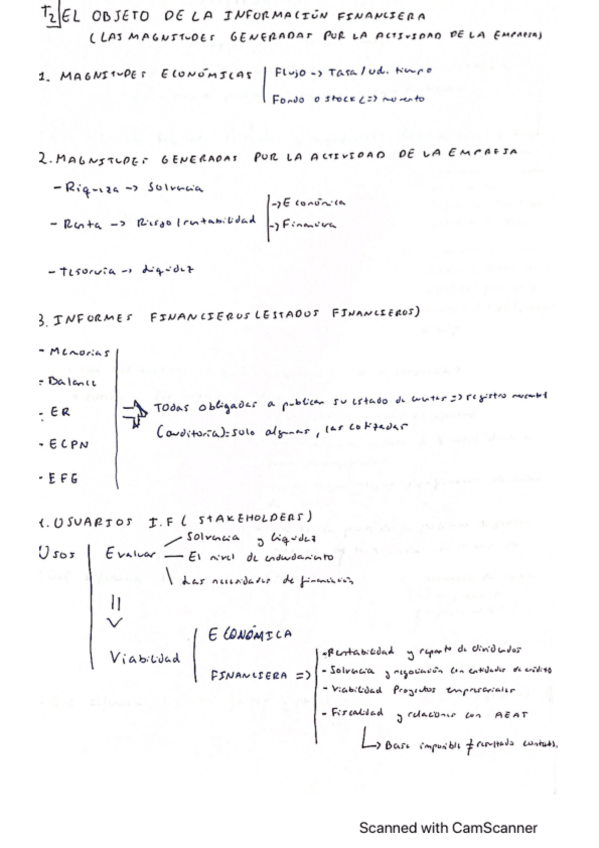 T2 EL OBJETO DE LA INFORMACIÓN FINANCIERA
(LAS MAGNITUDES GENERADAS POR LA ACTIVIDAD DE LA EMPRESA)
1. MAGNITUDES ECONÓMICAS | Flujo -> Tasa/ud. tiempo
Fondo o stock (=) momento
2. MAGNITUDES GENERADAS POR LA ACTIVIDAD DE LA EMPRESA
- Riqueza -> Solvencia
- Renta -> Riesgo/rentabilidad | -> Económica
-> Financiera
- Tesorería -> Liquidez
3. INFORMES FINANCIEROS (ESTADOS FINANCIEROS)
- Memorias
- Balance
- ER
=> Todas obligadas a publicar su estado de cuentas => registro mercantil
(auditoría): solo algunas, las cotizadas
- ECPN
- EFG
1. USUARIOS I.F ( STAKEHOLDERS)
Usos | Evaluar - Solvencia y liquidez
- El nivel de endeudamiento
\ Las necesidades de financiación
Viabilidad | ECONÓMICA
FINANCIERA =>
- Rentabilidad y reparto de dividendos
- Solvencia y negociación con entidades de crédito
- Viabilidad Proyectos empresariales
- Fiscalidad y relaciones con AEAT
-> Base imponible ≠ resultado contab.
Scanned with CamScanner